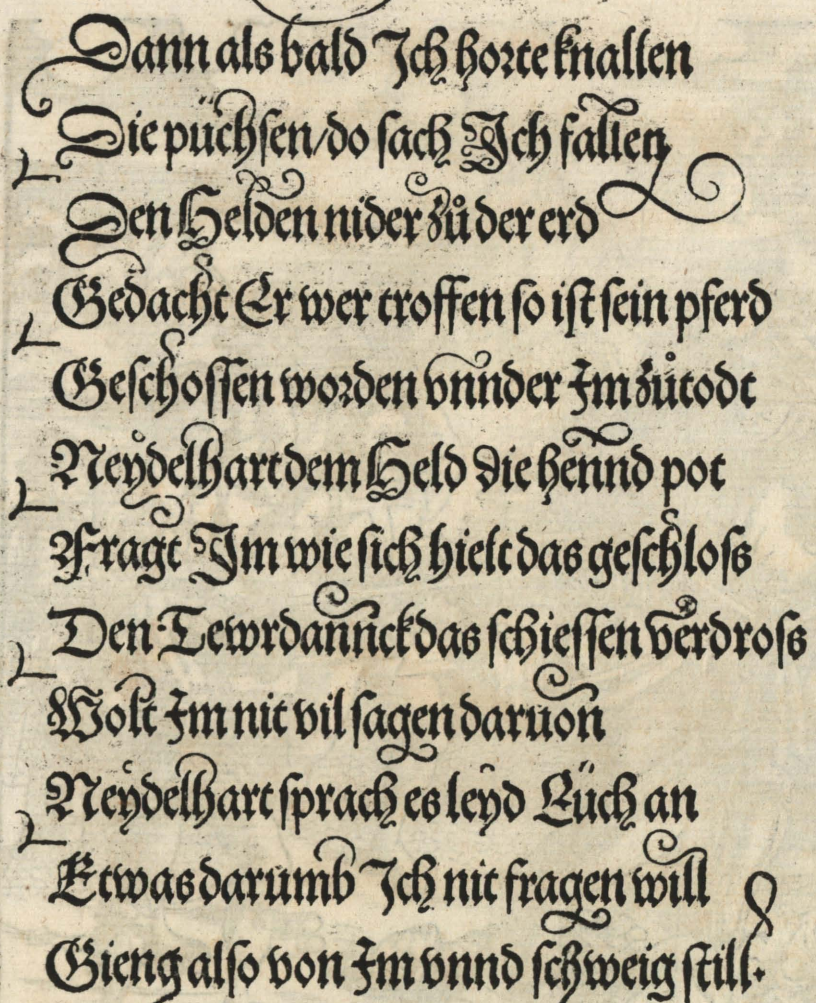 Dann als bald Ich horte knallen
Die püchsen/do sach Ich fallen
Den Helden nider zů der erd
Gedacht Er wer troffen so ist sein pferd
Geschossen worden vnnder Im zů todt
Neydelhart dem Held die hennd pot
Fragt Im wie sich hielt das geschloss
Den Tewrdannck das schiessen verdross
Wolt Im nit vil sagen daruon
Neydelhart sprach es leyd Eüch an
Etwas darumb Ich nit fragen will
Gieng also von Im vnnd schweig still.